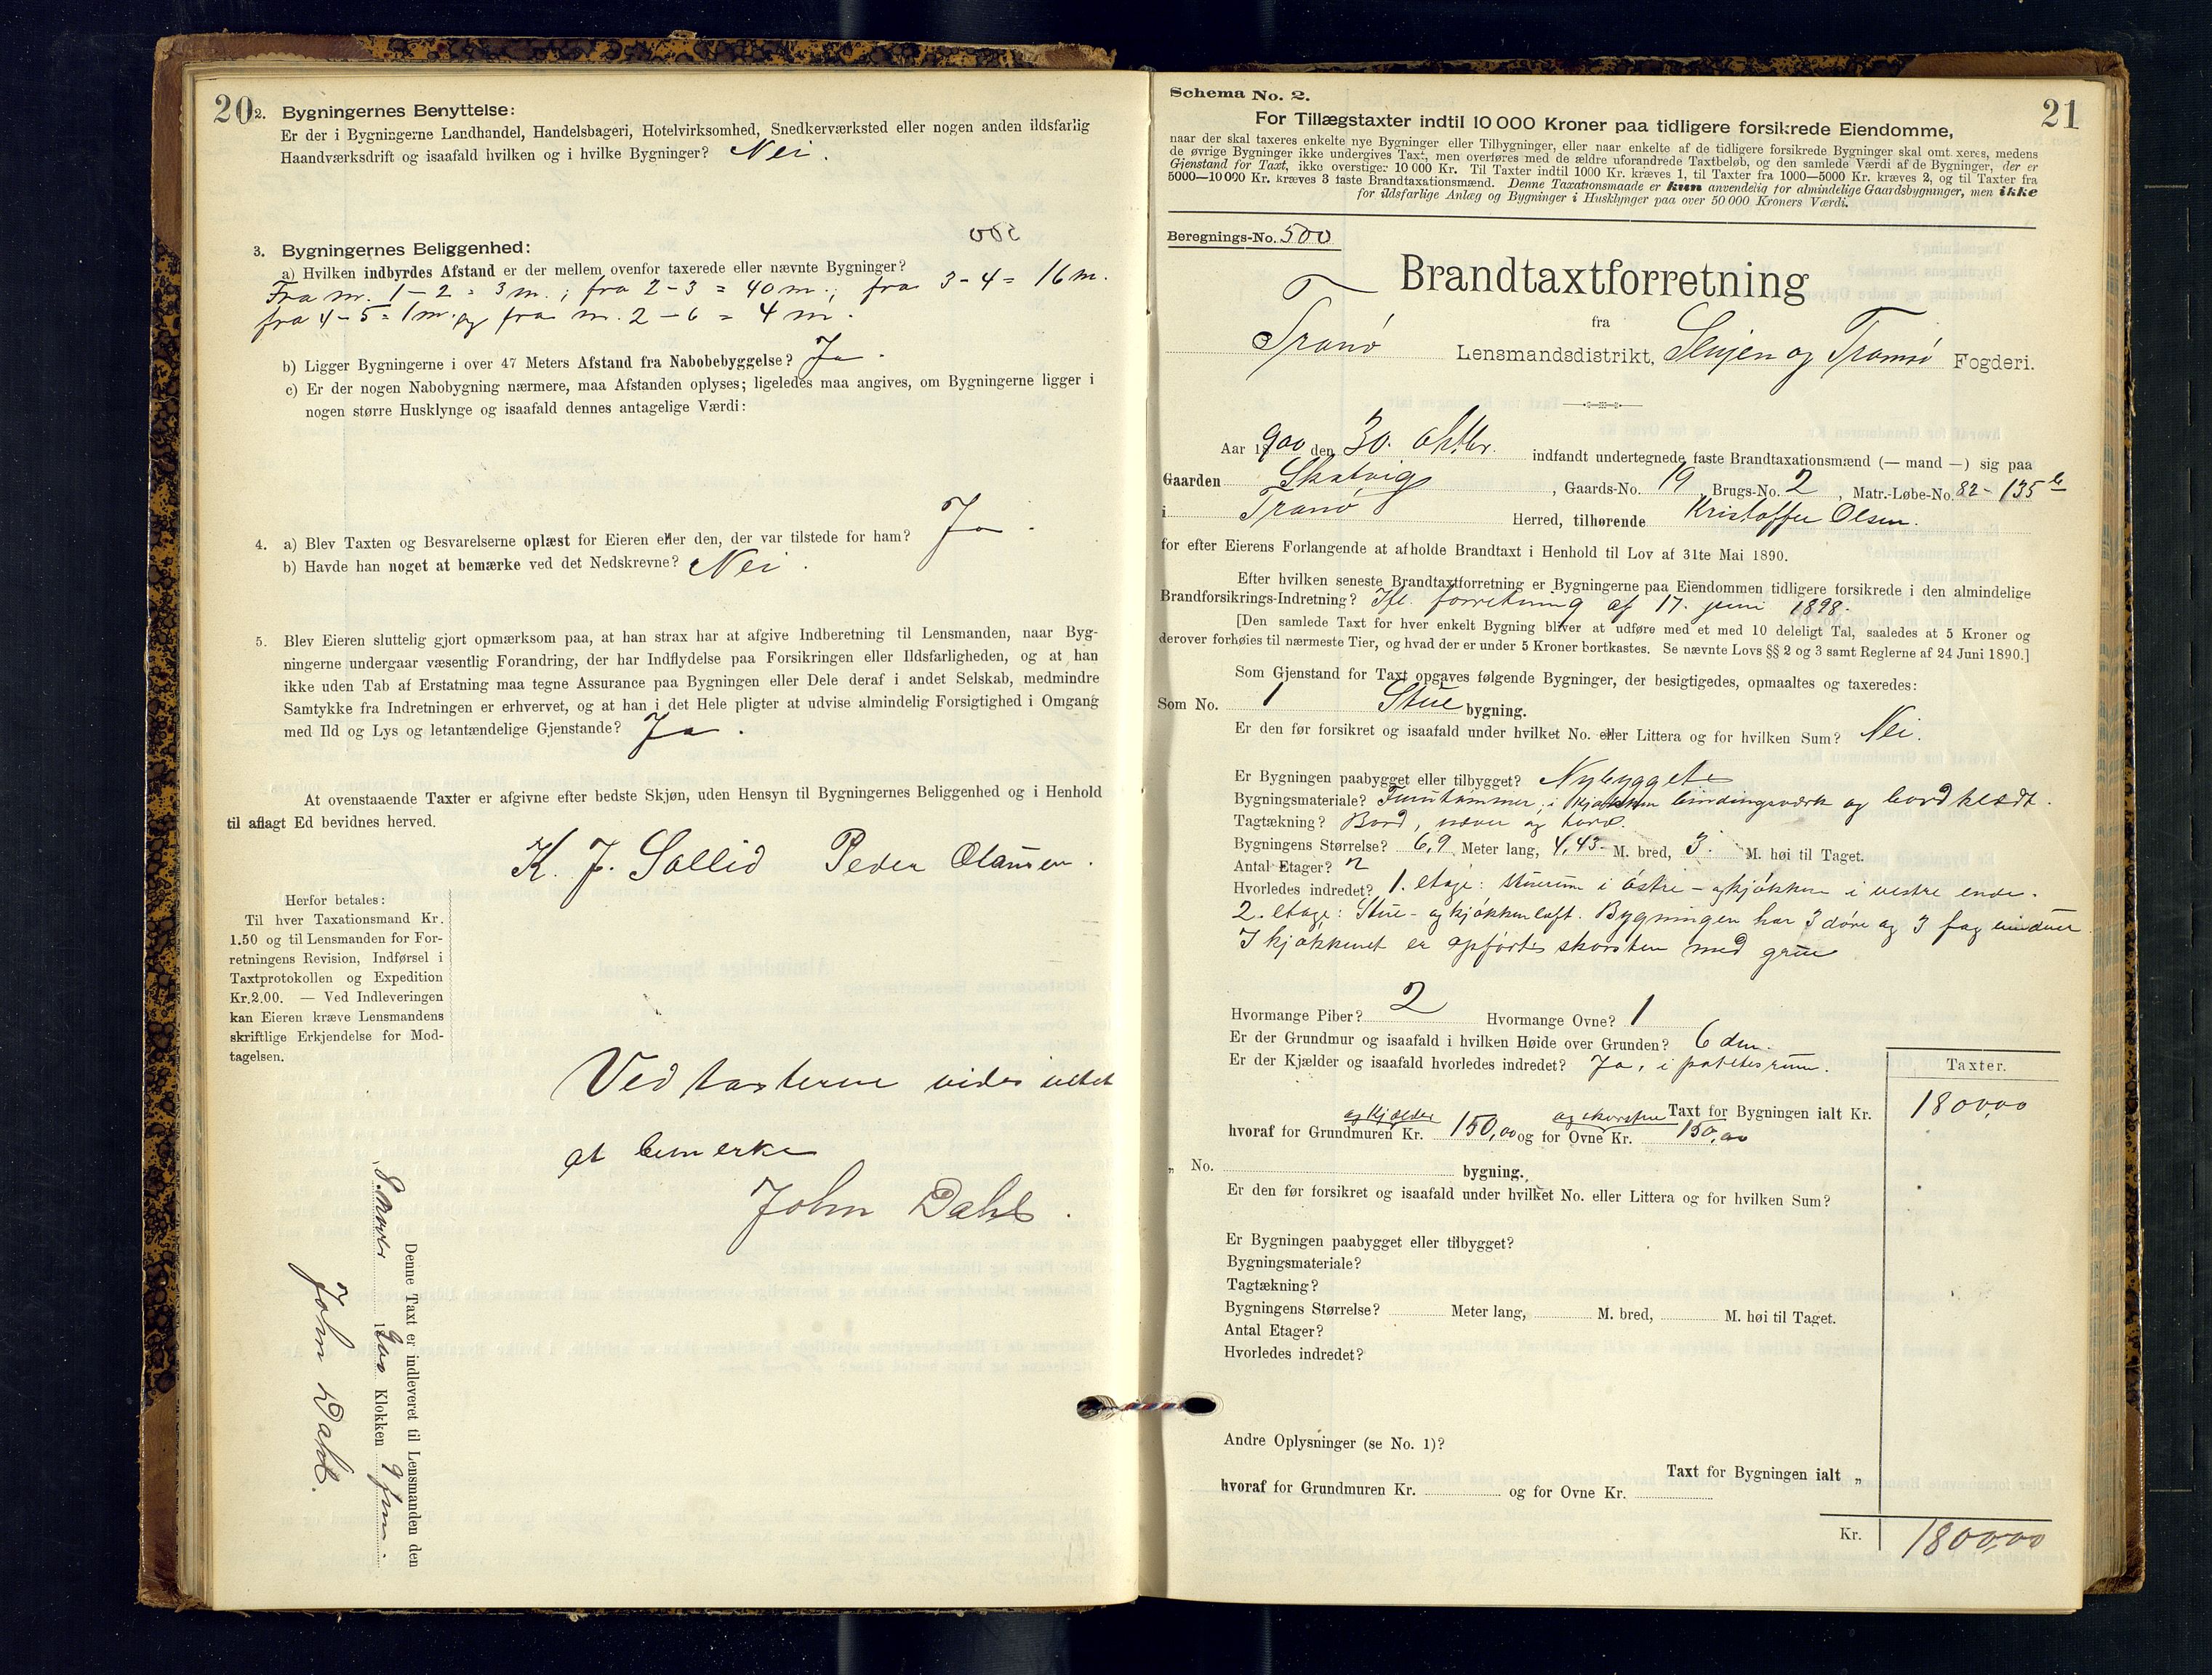 20
2. Bygningernes Benyttelse:
Er der i Bygningerne Landhandel, Handelsbageri, Hotelvirksomhed, Snedkerværksted eller nogen anden ildsfarlig
Haandværksdrift og isaafald hvilken og i hvilke Bygninger? Nei.
3. Bygningernes Beliggenhed:
a) Hvilken indbyrdes Afstand er der mellem ovenfor taxerede eller nævnte Bygninger?
Fra nr. 1-2 = 3 m.; fra 2-3 = 40 m.; fra 3-4 = 16 m.
fra 4-5 = 1 m. og fra nr. 2-6 = 4 m.
b) Ligger Bygningerne i over 47 Meters Afstand fra Nabobebyggelse? Ja.
c) Er der nogen Nabobygning nærmere, maa Afstanden oplyses; ligeledes maa angives, om Bygningerne ligger i
nogen større Husklynge og isaafald dennes antagelige Værdi:
4. a) Blev Taxten og Besvarelserne oplæst for Eieren eller den, der var tilstede for ham? Ja.
b) Havde han noget at bemærke ved det Nedskrevne? Nei.
5. Blev Eieren sluttelig gjort opmærksom paa, at han strax har at afgive Indberetning til Lensmanden, naar Byg-
ningerne undergaar væsentlig Forandring, der har Indflydelse paa Forsikringen eller Ildsfarligheden, og at han
ikke uden Tab af Erstatning maa tegne Assurance paa Bygningen eller Dele deraf i andet Selskab, medmindre
Samtykke fra Indretningen er erhvervet, og at han i det Hele pligter at udvise almindelig Forsigtighed i Omgang
med Ild og Lys og letantændelige Gjenstande? Ja.
At ovenstaaende Taxter er afgivne efter bedste Skjøn, uden Hensyn til Bygningernes Beliggenhed og i Henhold
til aflagt Ed bevidnes herved.
K. J. Sollid Peder Olaussen.
Herfor betales:
Til hver Taxationsmand Kr.
1.50 og til Lensmanden for For-
retningens Revision, Indførsel i
Taxtprotokollen og Expedition
Kr. 2.00. — Ved Indleveringen
kan Eieren kræve Lensmandens
skriftlige Erkjendelse for Mod-
tagelsen.
Ved taxterne vides intet
at bemerke
John Dahl.
Denne Taxt er indleveret til Lensmanden den
8. Novbr 1900 Klokken 9 fm.
John Dahl.
21
Schema No. 2.
For Tillægstaxter indtil 10 000 Kroner paa tidligere forsikrede Eiendomme,
naar der skal taxeres enkelte nye Bygninger eller Tilbygninger, eller naar enkelte af de tidligere forsikrede Bygninger skal omt xeres, medens
de øvrige Bygninger ikke undergives Taxt, men overføres med de ældre uforandrede Taxtbeløb, og den samlede Værdi af de Bygninger, der er
Gjenstand for Taxt, ikke overstiger 10 000 Kr. Til Taxter indtil 1000 Kr. kræves 1, til Taxter fra 1000—5000 Kr. kræves 2, og til Taxter fra
5000—10 000 Kr. kræves 3 faste Brandtaxationsmænd. Denne Taxationsmaade er kun anvendelig for almindelige Gaardsbygninger, men ikke
for ildsfarlige Anlæg og Bygninger i Husklynger paa over 50 000 Kroners Værdi.
Beregnings-No. 500
Brandtaxtforretning
fra
Tranø Lensmandsdistrikt, Senjen og Tromsø Fogderi.
Aar 1900 den 30. oktbr. indfandt undertegnede faste Brandtaxationsmænd (— mand —) sig paa
Gaarden Skatvig, Gaards-No. 19, Brugs-No. 2, Matr.-Løbe-No. 82-135 b
i Tranø Herred, tilhørende Kristoffer Olsen.
for efter Eierens Forlangende at afholde Brandtaxt i Henhold til Lov af 31te Mai 1890.
Efter hvilken seneste Brandtaxtforretning er Bygningerne paa Eiendommen tidligere forsikrede i den almindelige
Brandforsikrings-Indretning? Ifl. forretning af 17. juni 1898.
[Den samlede Taxt for hver enkelt Bygning bliver at udføre med et med 10 deleligt Tal, saaledes at 5 Kroner og
derover forhøies til nærmeste Tier, og hvad der er under 5 Kroner bortkastes. Se nævnte Lovs §§ 2 og 3 samt Reglerne af 24 Juni 1890.]
Som Gjenstand for Taxt opgaves følgende Bygninger, der besigtigedes, opmaaltes og taxeredes:
Som No. 1 Stue bygning.
Er den før forsikret og isaafald under hvilket No. eller Littera og for hvilken Sum? Nei.
Er Bygningen paabygget eller tilbygget? Nybyggets
Bygningsmateriale? Furutømmer, i kjøkken bindingsværk og bordklædt.
Tagtækning? Bord, næver og torv.
Bygningens Størrelse? 6,9 Meter lang, 4,43 M. bred, 3. M. høi til Taget.
Antal Etager? 2
Hvorledes indredet? 1. etage: stuerum i østre - og kjøkken i vestre ende.
2. etage: Stue- og kjøkkenloft. Bygningen har 3 døre og 3 fag vinduer.
I kjøkkenet er opførtes skorsten med grue
Hvormange Piber? 2 Hvormange Ovne? 1
Er der Grundmur og isaafald i hvilken Høide over Grunden? 6 dm.
Er der Kjælder og isaafald hvorledes indredet? Ja, i potetesrum.
Taxter.
Taxt for Bygningen ialt Kr. 1800,00
og kjælder og skorsten
hvoraf for Grundmuren Kr. 150,00 og for Ovne Kr. 150,00
„ No. bygning.
Er den før forsikret og isaafald under hvilket No. eller Littera og for hvilken Sum?
Er Bygningen paabygget eller tilbygget?
Bygningsmateriale?
Tagtækning?
Bygningens Størrelse? Meter lang, M. bred, M. høi til Taget.
Antal Etager?
Hvorledes indredet?
Andre Oplysninger (se No. 1)?
Taxt for Bygningen ialt „
hvoraf for Grundmuren Kr. og for Ovne Kr.
Kr. 1800,00